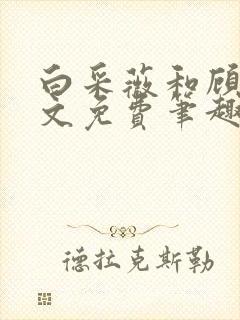 白采薇和顾
文免费笔趣
德拉克斯勒